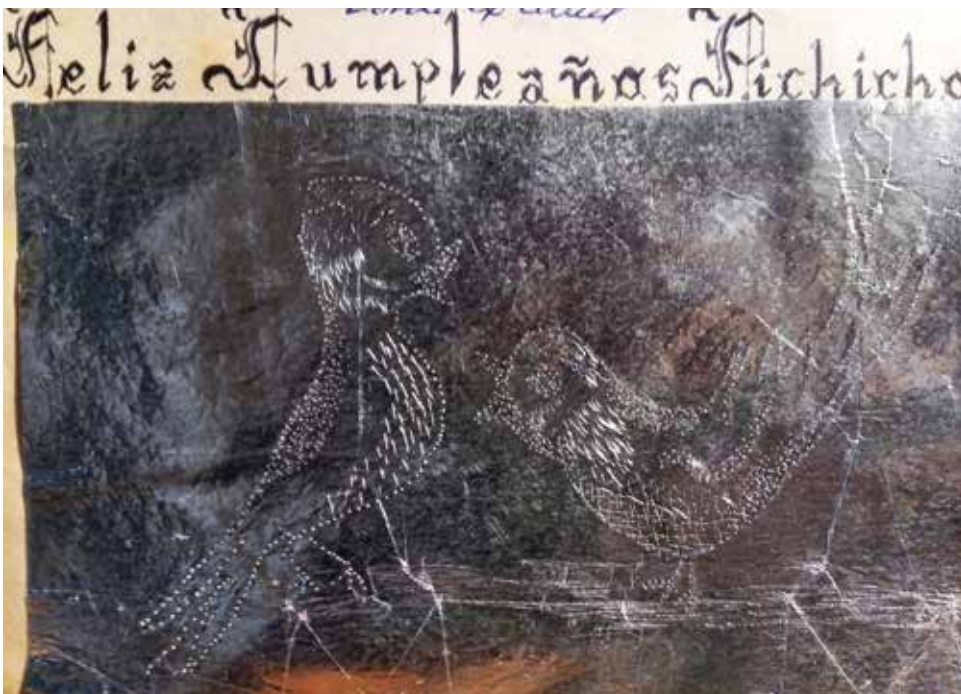 Feliz Cumpleaños Pichicho